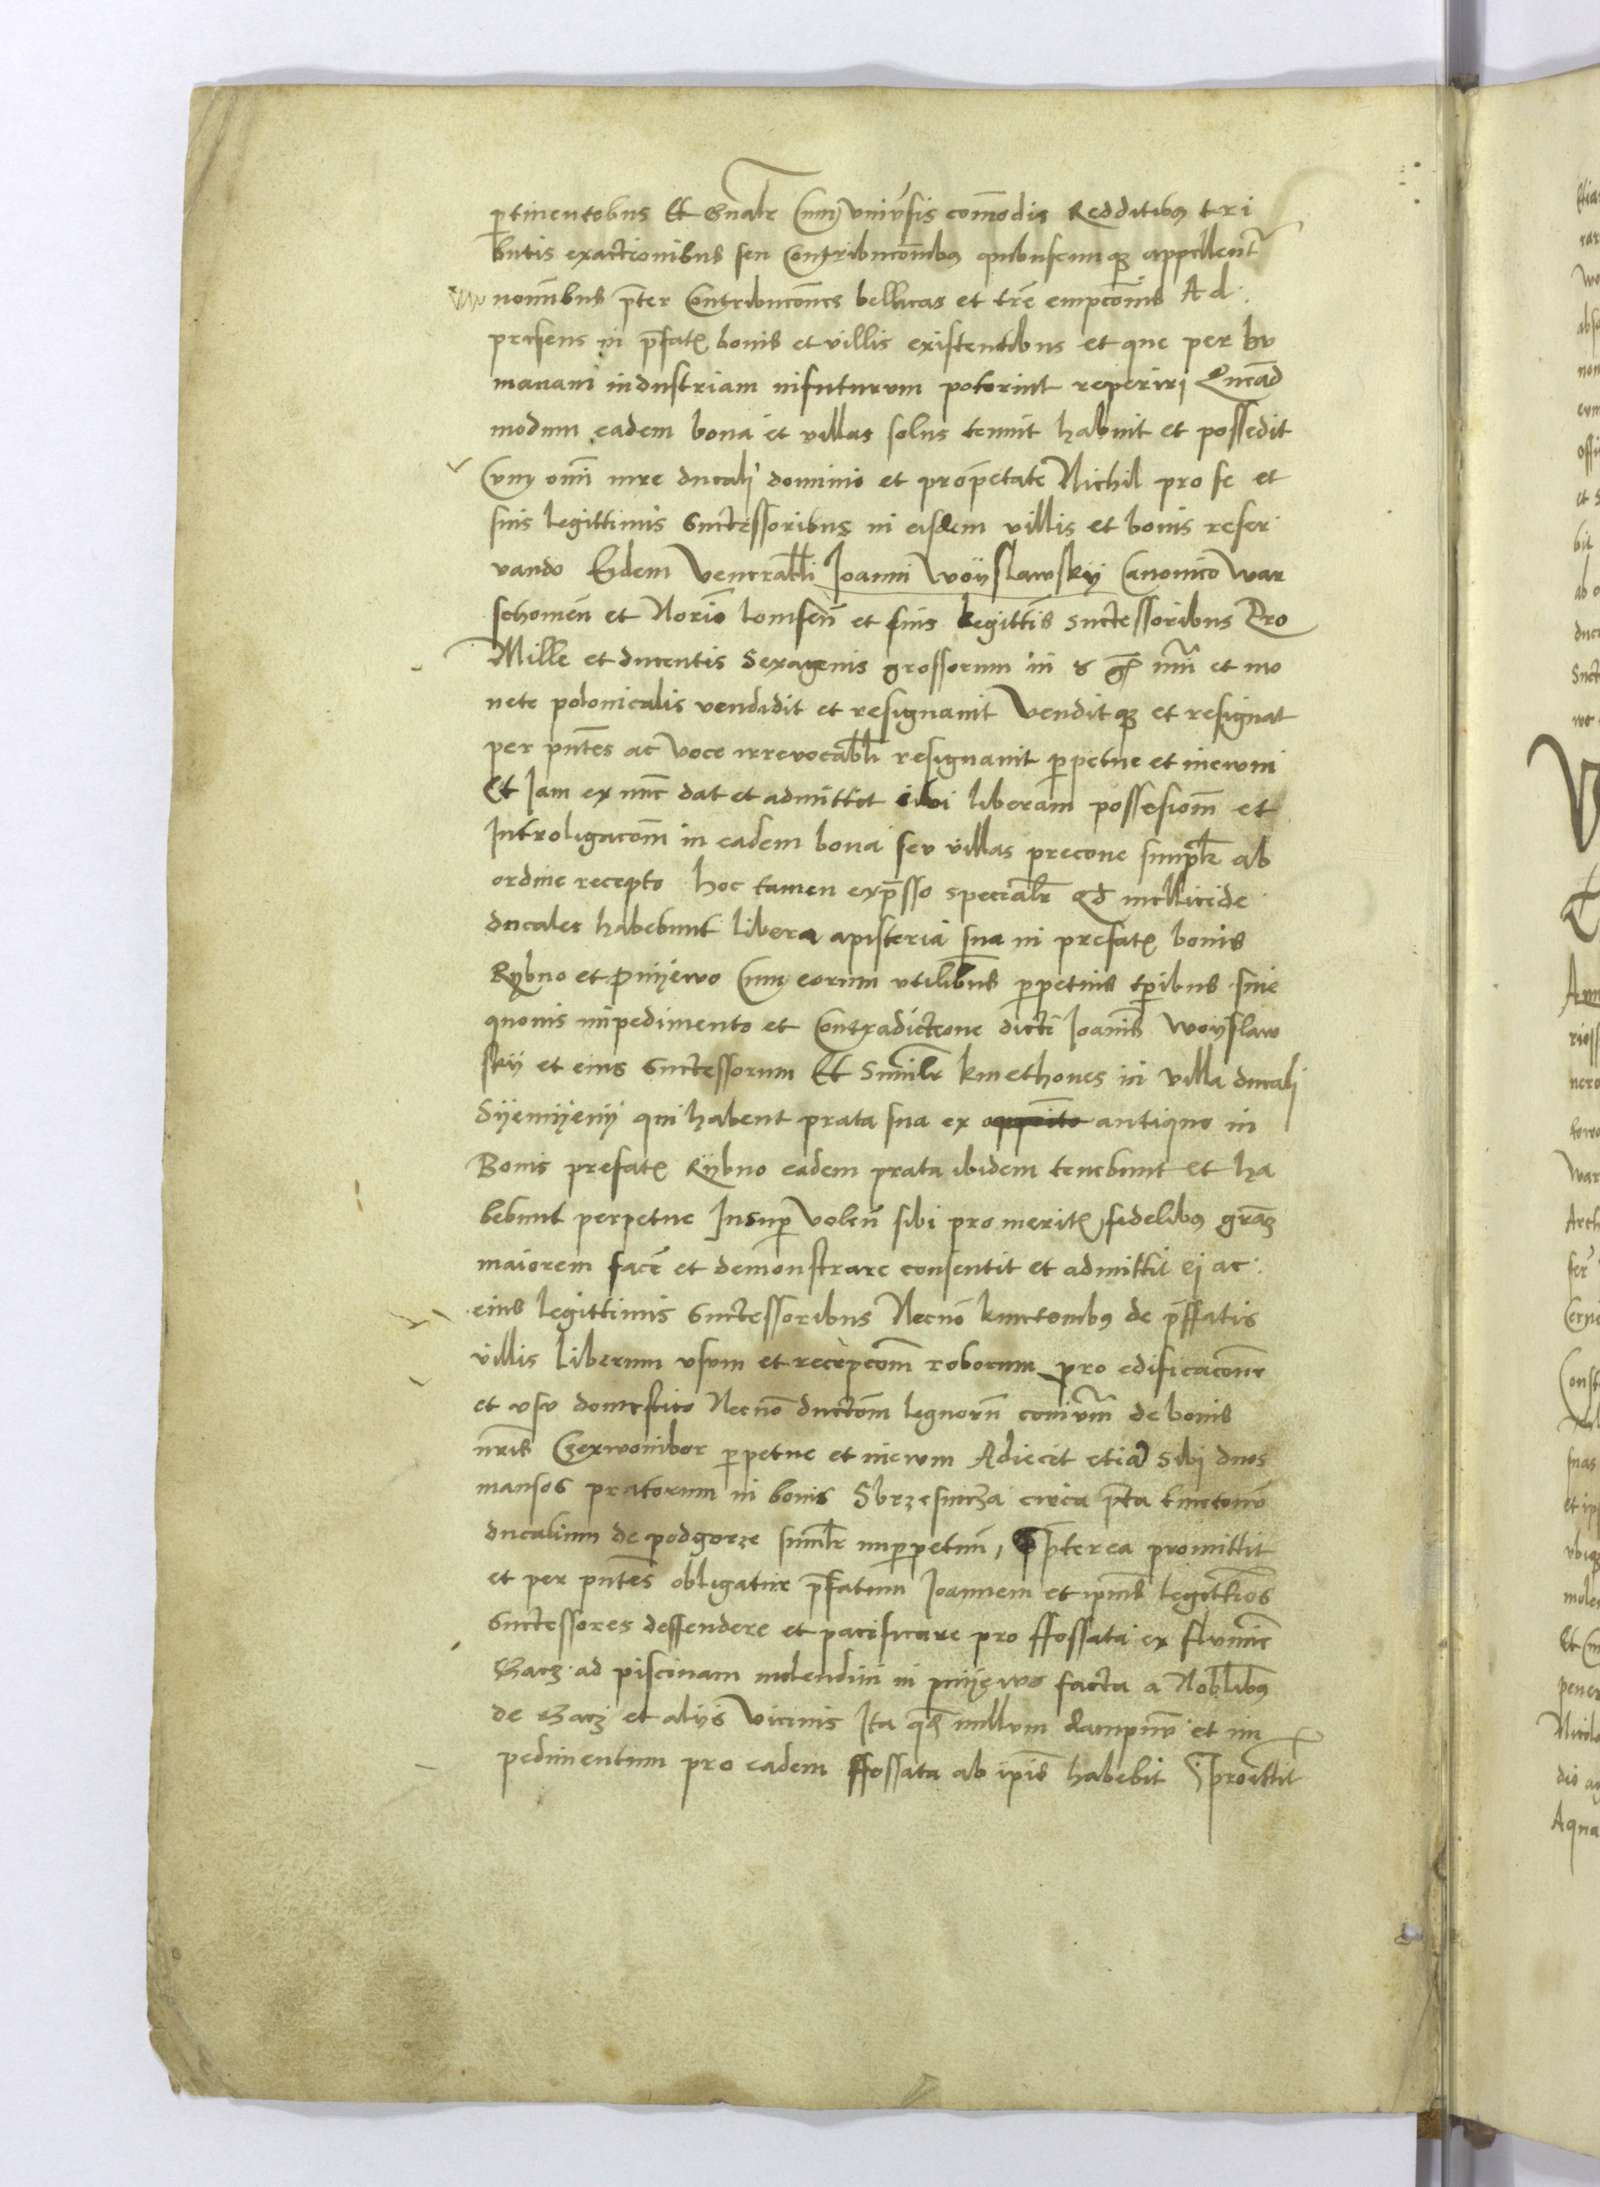 ꝑtinentibus Et Gn̄alr̄ Cum univ̄sis com̄odis Redditibꝫ tri
butis exactionibus seu Contribucōnibꝫ quibuscumqꝫ appellent̄
nomībus p̄ter Contribucōnes bellicas et trē empcōnis Ad
presens in p̄fatꝭ bonis et villis existentibus et que per hu
manam industriam infuturum poterint reperiri Quēad
modum eadem bona et villas solus tenuit habuit et possedit
Cum omī iure ducali dominio et prop̄etate Nichil pro se et
suis legittimis Successoribus in eisdem villis et bonis reser
vando Eidem Venerabli Joanni Woÿslawskÿ Canonico War
schouien̄ et Norio lomsen̄ et suis legittīs successoribus Pro
Mille et ducentis Sexagenis grossorum in gꝭ nūi et mo
nete polonicalis vendidit et resignauit Venditqꝫ et resignat
per pn̄tes ac Voce irrevocabli resignauit ꝑpetue et ineuum
Et Jam ex nūc dat et admittit sibi liberam possesionē et
Introligacōm in eadem bona seu villas precone simplr̄ ab
ordine recepto hoc tamen exp̄sso specialr̄ qd̄ mellicide
ducales habebunt libera apisteria sua in prefatꝭ bonis
Rÿbno et pnÿewo Cum eorum vtilibus ꝑpetuis tꝑibus sine
quouis impedimento et Contradictione dicti Joanīs Woÿslaw
skÿ et eius Successorum Et Similr̄ kmethones in villa ducali
Sÿemÿenÿ qui habent prata sua ex antiquo in
Bonis prefatꝭ Rÿbno eadem prata ibidem tenebunt et ha
bebunt perpetue Insuꝑ volen̄ sibi pro meritꝭ fidelibꝫ grāz
maiorem facē et demonstrare consentit et admittit ei ac
eius legittimis Successoribus Necnō kmetonibꝫ de p̄ffatis
villis Liberum vsum et recepcōm roborum pro edificacone
et vsu domestico Necnō ductōm lignorū de bonis
nrīs Czerwonibor ꝑpetue et ineuum Adiecit etiā Sibi duos
mansos pratorum in bonis circa p̄ta kmetonū
ducalium de podgorze similr̄ inꝑpetuū, p̄terea promittit
et per pn̄tes obligatur p̄fatum Joannem et ipius legittīos
Successores deffendere et pacificare pro ffossata ex flumīe
Gacz ad piscinam molendini in pnÿewo facta a Nobilibꝫ
de Gacz et aliÿs Vicinis Ita qd̄ nullum dampnū et im
pedimentum pro eadem ffossata ab ipīs habebit promittit